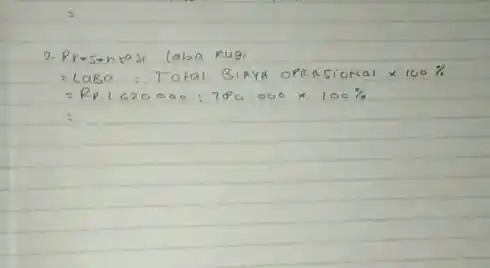 :
2. Presentasi laba rugi
= LABA : Total BIAYA OPRASIONAL x 100%
= Rp 1.620 000 : 780 000 x 100%
: